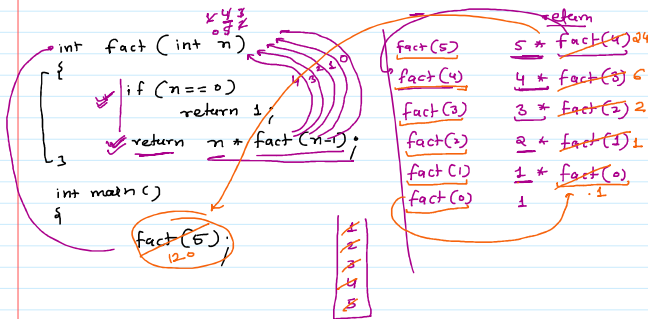 int fact (int n)
{
if (n==0)
return 1;
return n * fact (n-1);
}
int main ()
{
fact(5);
120
4 3 2 1 0
return
fact(5) 5 * fact(4) 24
fact(4) 4 * fact(3) 6
fact(3) 3 * fact(2) 2
fact(2) 2 * fact(1) 1
fact(1) 1 * fact(0)
1
fact(0) 1
1
2
3
4
5